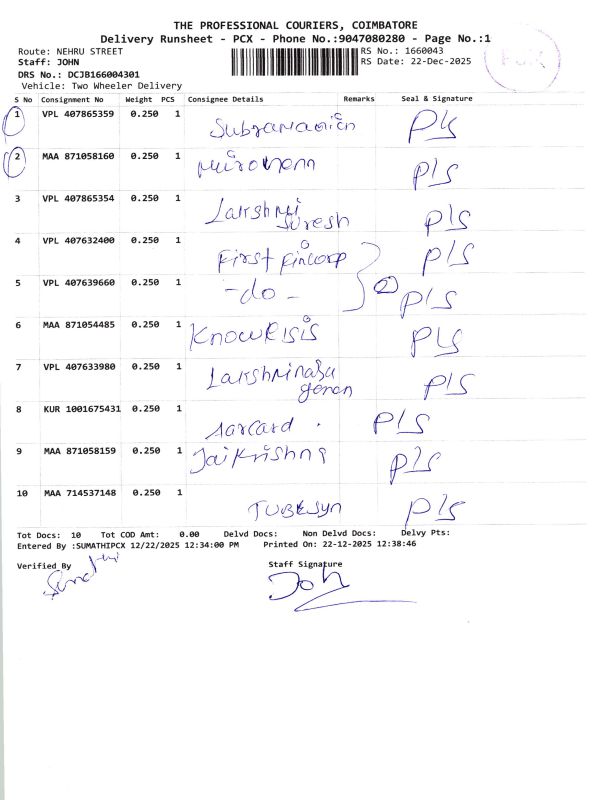 THE PROFESSIONAL COURIERS, COIMBATORE
Delivery Runsheet - PCX - Phone No.:9047080280 - Page No.:1
Route: NEHRU STREET
RS No.: 1660043
Staff: JOHN
RS Date: 22-Dec-2025
DRS No.: DCJB166004301
Vehicle: Two Wheeler Delivery
S No Consignment No Weight PCS Consignee Details Remarks Seal & Signature
1 VPL 407865359 0.250 1 Subramanian PLS
2 MAA 871058160 0.250 1 PLS
3 VPL 407865354 0.250 1 Lakshmi Suresh PLS
4 VPL 407632400 0.250 1 First Fincorp PLS
5 VPL 407639660 0.250 1 -do- 2 PLS
6 MAA 871054485 0.250 1 KnowRisis PLS
7 VPL 407633980 0.250 1 PLS
8 KUR 1001675431 0.250 1 Sarcard . PLS
9 MAA 871058159 0.250 1 Jai Krishna PLS
10 MAA 714537148 0.250 1 PLS
Tot Docs: 10 Tot COD Amt: 0.00 Delvd Docs: Non Delvd Docs: Delvy Pts:
Entered By :SUMATHIPCX 12/22/2025 12:34:00 PM Printed On: 22-12-2025 12:38:46
Verified By
Staff Signature
Joh